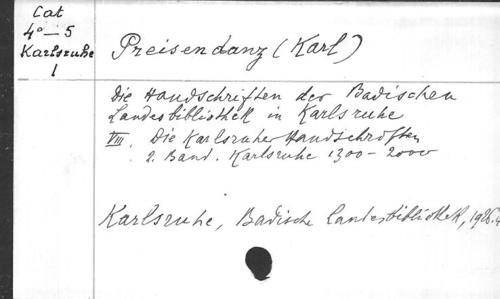 Cat
4°—5
Karlsruhe
1
Preisendanz (Karl)
Die Handschriften der Badischen
Landesbibliothek in Karlsruhe
VIII. Die Karlsruher Handschriften
2. Band. Karlsruhe 1300-2000
Karlsruhe, Badische Landesbibliothek, 1926.4°